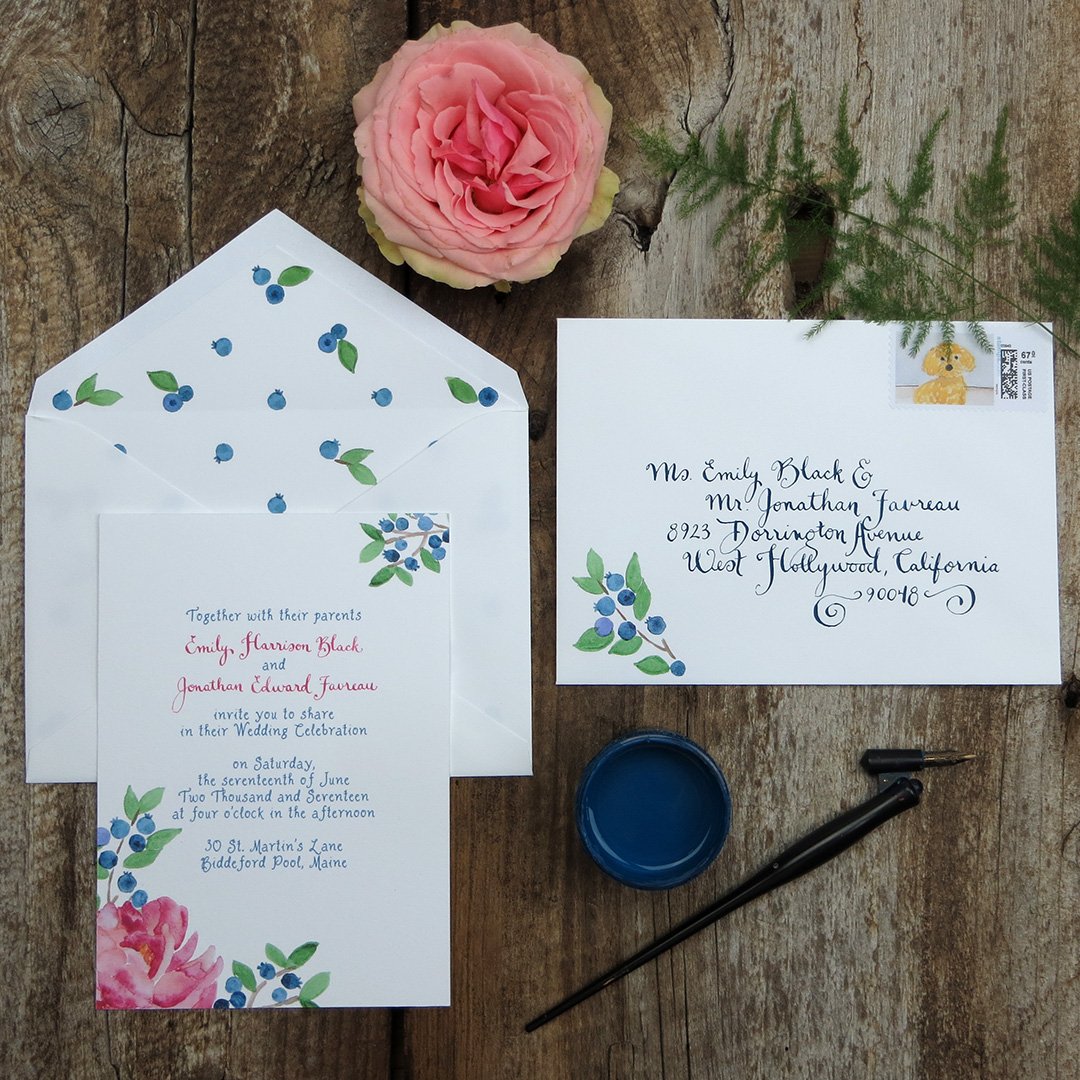 Together with their parents
Emily Harrison Black
and
Jonathan Edward Favreau
invite you to share
in their Wedding Celebration
on Saturday,
the seventeenth of June
Two Thousand and Seventeen
at four o'clock in the afternoon
30 St. Martin's Lane
Biddeford Pool, Maine
67 01
cents
US POSTAGE
FIRST-CLASS
Ms. Emily Black &
Mr. Jonathan Favreau
8923 Dorrington Avenue
West Hollywood, California
90048